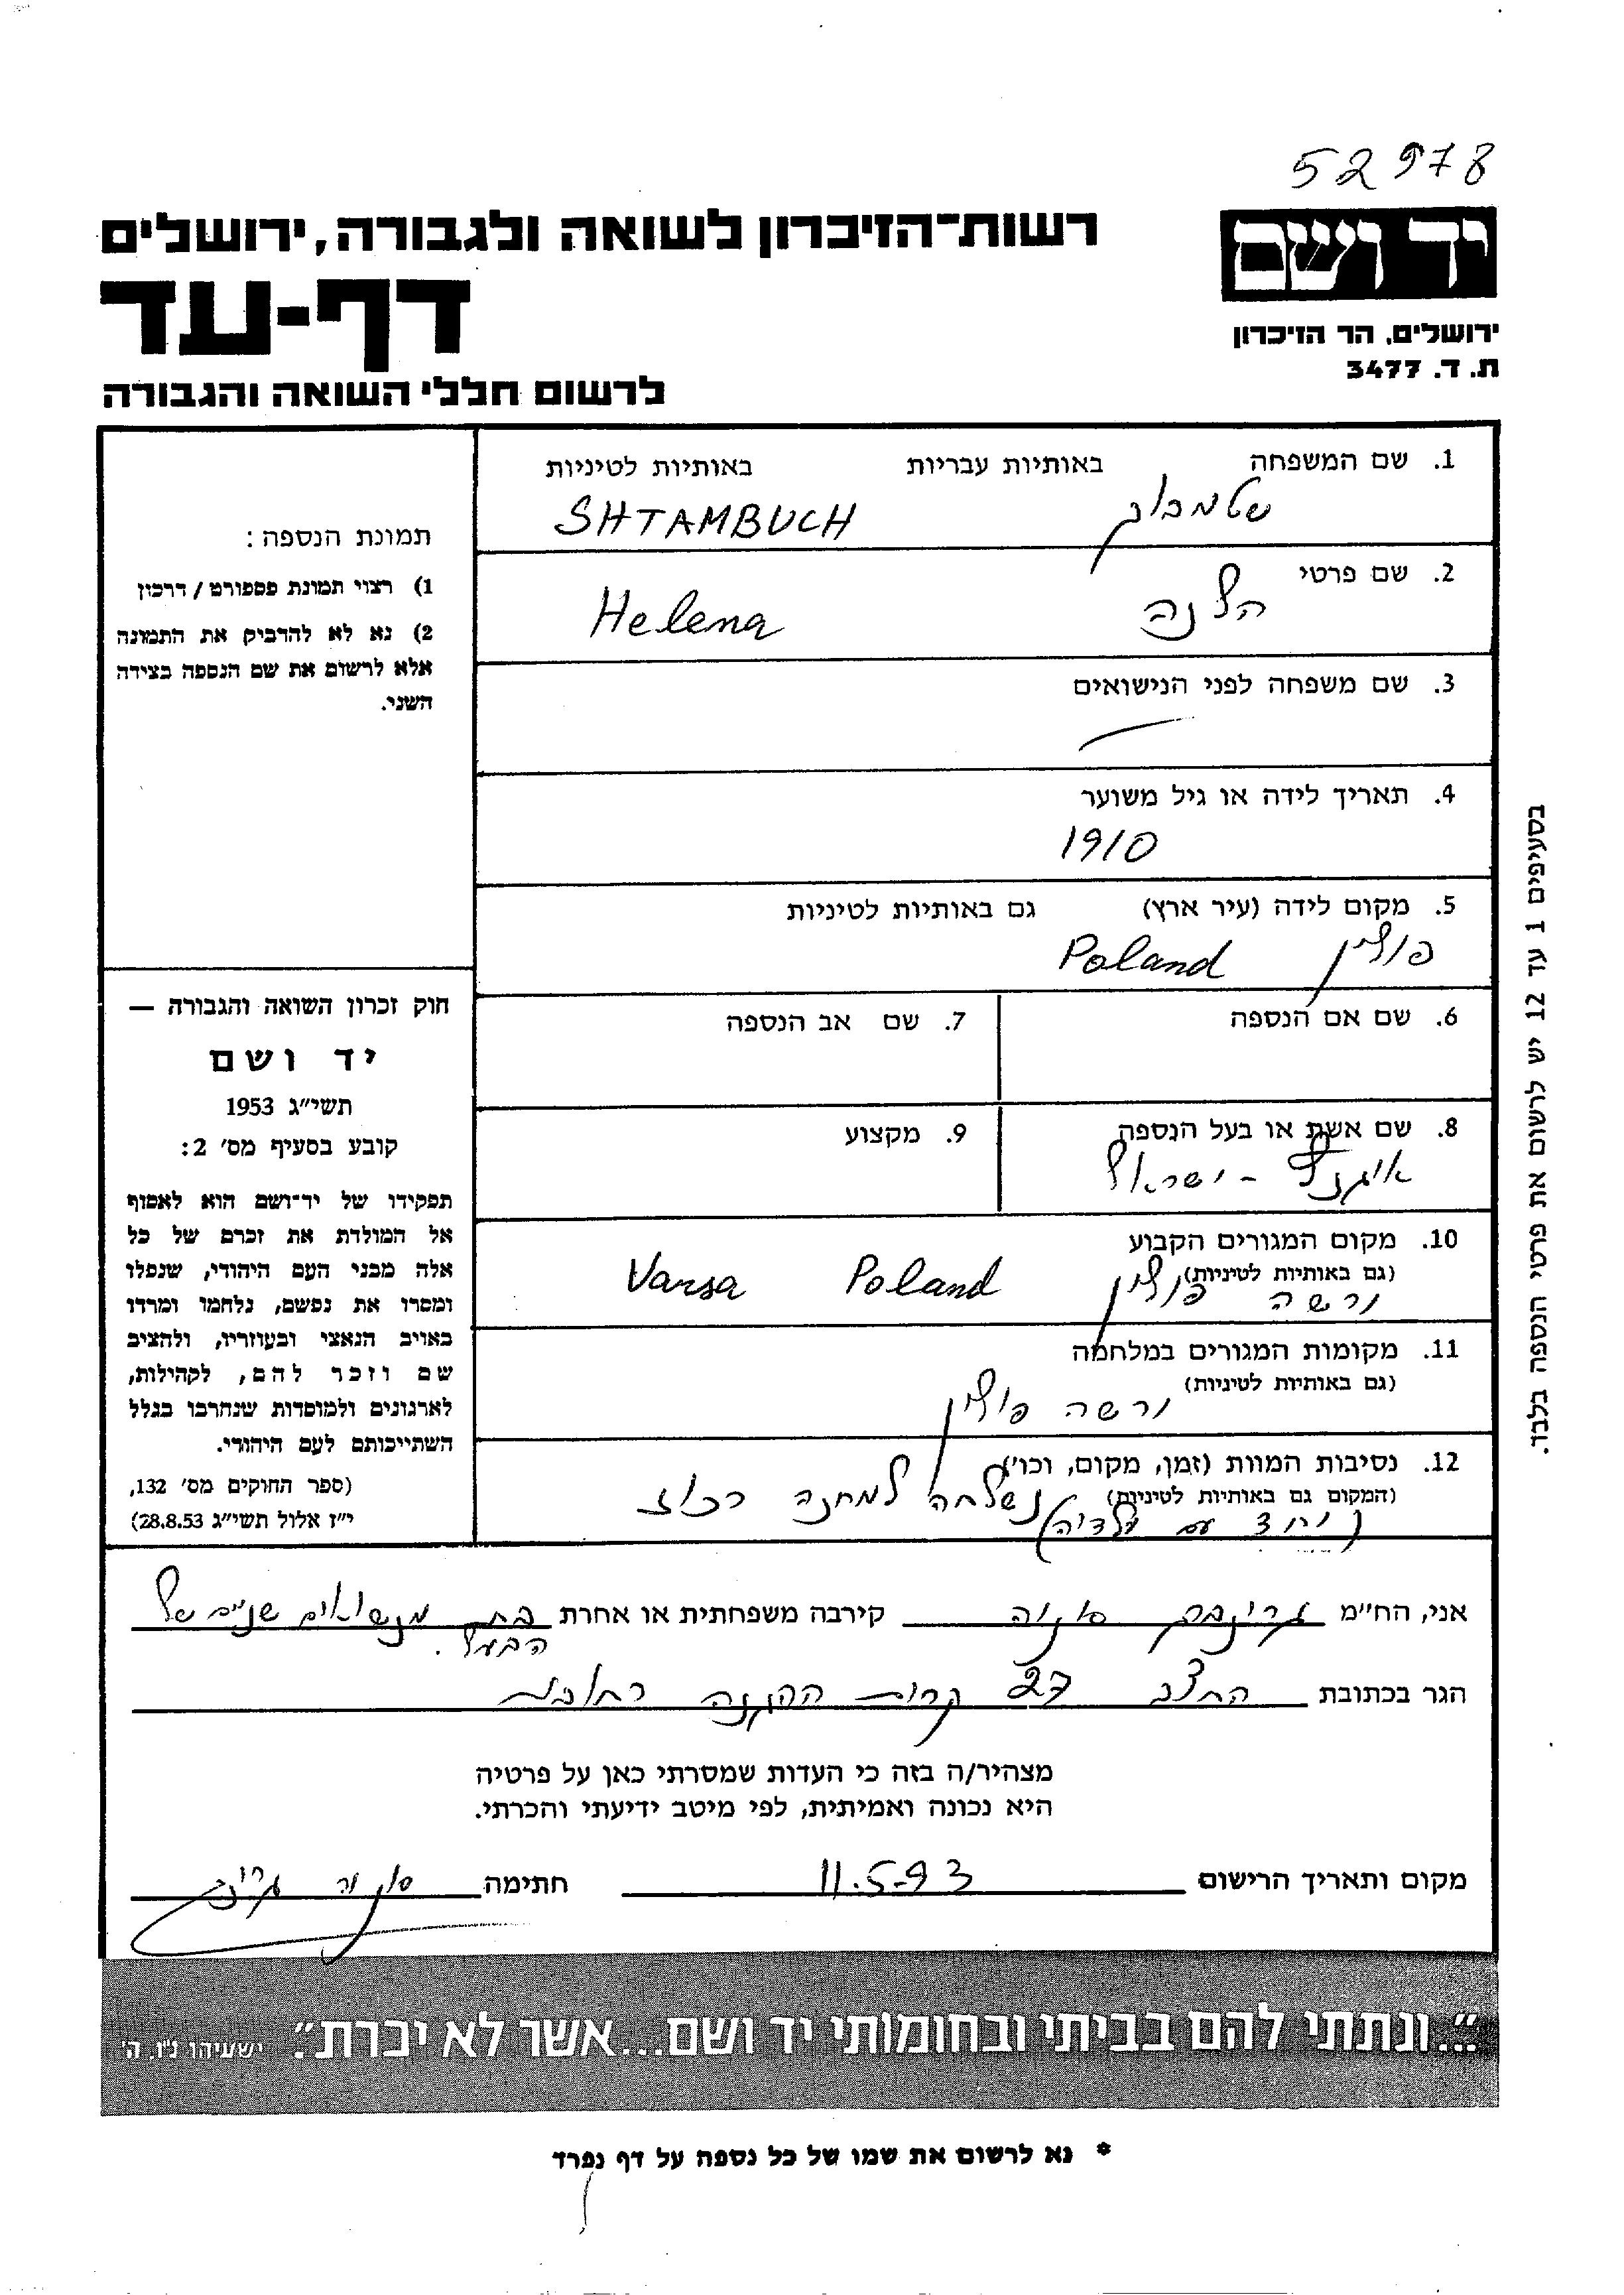 52978
יד ושם
ירושלים, הר הזיכרון
ת. ד. 3477
רשות-הזיכרון לשואה ולגבורה, ירושלים
דף-עד
לרשום חללי השואה והגבורה
1. שם המשפחה באותיות עבריות באותיות לטיניות
שטמבוך SHTAMBUCH
2. שם פרטי
הלנה Helena
3. שם משפחה לפני הנישואים
4. תאריך לידה או גיל משוער
1910
5. מקום לידה (עיר ארץ) גם באותיות לטיניות
פולין Poland
6. שם אם הנספה 7. שם אב הנספה
8. שם אשת או בעל הנספה 9. מקצוע
- ישראל
10. מקום המגורים הקבוע
(גם באותיות לטיניות)
ורשה פולין Poland Varsa
11. מקומות המגורים במלחמה
(גם באותיות לטיניות)
ורשה פולין
12. נסיבות המוות (זמן, מקום, וכו')
(המקום גם באותיות לטיניות) נשלחה למחנה רכוז
(יחד עם ילדיה)
תמונת הנספה:
1) רצוי תמונת פספורט / דרכון
2) נא לא להדביק את התמונה
אלא לרשום את שם הנספה בצידה
השני.
חוק זכרון השואה והגבורה —
יד ושם
תשי"ג 1953
קובע בסעיף מס' 2:
תפקידו של יד-ושם הוא לאסוף
אל המולדת את זכרם של כל
אלה מבני העם היהודי, שנפלו
ומסרו את נפשם, נלחמו ומרדו
באויב הנאצי ובעוזריו, ולהציב
שם וזכר להם, לקהילות,
לארגונים ולמוסדות שנחרבו בגלל
השתייכותם לעם היהודי.
(ספר החוקים מס' 132,
י"ז אלול תשי"ג 28.8.53)
בסעיפים 1 עד 12 יש לרשום את פרטי הנספה בלבד.
אני, הח"מ גרינברג סוניה קירבה משפחתית או אחרת בת מנשואים שניים של
הבעל.
הגר בכתובת החצב 27 קרית ההגנה רחובות
מצהיר/ה בזה כי העדות שמסרתי כאן על פרטיה
היא נכונה ואמיתית, לפי מיטב ידיעתי והכרתי.
מקום ותאריך הרישום 11.5.93 חתימה
"...ונתתי להם בביתי ובחומותי יד ושם...אשר לא יכרת". ישעיהו נ"ו, ה'
* נא לרשום את שמו של כל נספה על דף נפרד